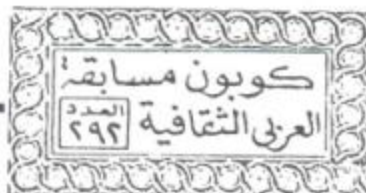 كوبون مسابقة
العربي الثقافية العدد
٢٩٢